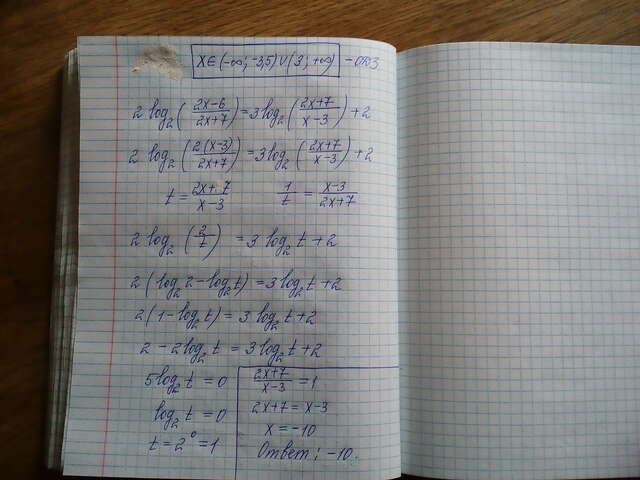 x∈(-∞; -3,5)∪(3; +∞) - ОДЗ
2 log₂((2x-6)/(2x+7)) = 3 log₂((2x+7)/(x-3)) + 2
2 log₂(2(x-3)/(2x+7)) = 3 log₂((2x+7)/(x-3)) + 2
t = (2x+7)/(x-3)   1/t = (x-3)/(2x+7)
2 log₂(2/t) = 3 log₂ t + 2
2(log₂ 2 - log₂ t) = 3 log₂ t + 2
2(1 - log₂ t) = 3 log₂ t + 2
2 - 2 log₂ t = 3 log₂ t + 2
5 log₂ t = 0
log₂ t = 0
t = 2⁰ = 1
(2x+7)/(x-3) = 1
2x+7 = x-3
x = -10
Ответ: -10.